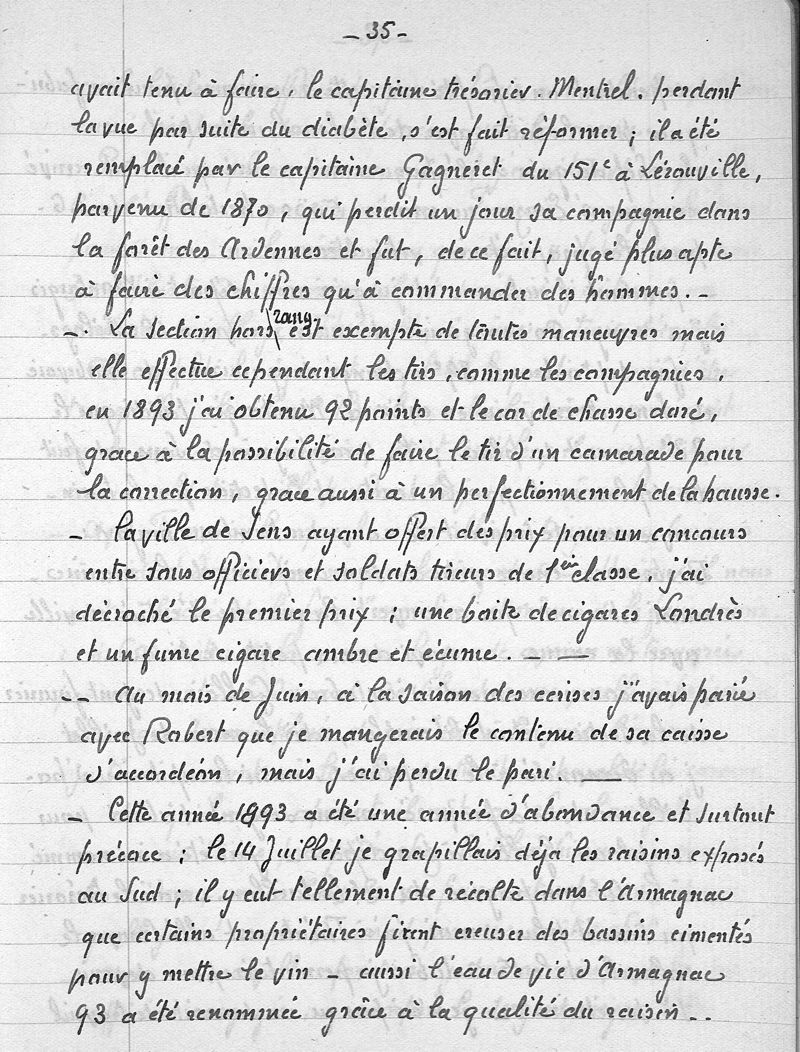 - 35 -
avait tenu à faire. le capitaine trésorier. Mentrel. perdant
la vue par suite du diabète, s'est fait réformer ; il a été
remplacé par le capitaine Gagneret du 151e à Lérouville,
parvenu de 1870, qui perdit un jour sa compagnie dans
la forêt des Ardennes et fut, de ce fait, jugé plus apte
à faire des chiffres qu'à commander des hommes. -
-. La section hors rang est exempte de toutes manœuvres mais
elle effectue cependant les tirs, comme les compagnies,
en 1893 j'ai obtenu 92 points et le cor de chasse doré,
grace à la possibilité de faire le tir d'un camarade pour
la correction, grace aussi à un perfectionnement de la hausse.
- la ville de Sens ayant offert des prix pour un concours
entre sous officiers et soldats tireurs de 1ère classe, j'ai
décroché le premier prix ; une boite de cigares Londrès
et un fume cigare ambre et écume. - —
-- Au mois de Juin, à la saison des cerises j'avais parié
avec Robert que je mangerais le contenu de sa caisse
d'accordéon, mais j'ai perdu le pari. —
- Cette année 1893 a été une année d'abondance et surtout
précoce ; le 14 Juillet je grapillais déja les raisins exposés
au Sud ; il y eut tellement de récolte dans l'Armagnac
que certains propriétaires firent creuser des bassins cimentés
pour y mettre le vin - aussi l'eau de vie d'Armagnac
93 a été renommée grâce à la qualité du raisin - .